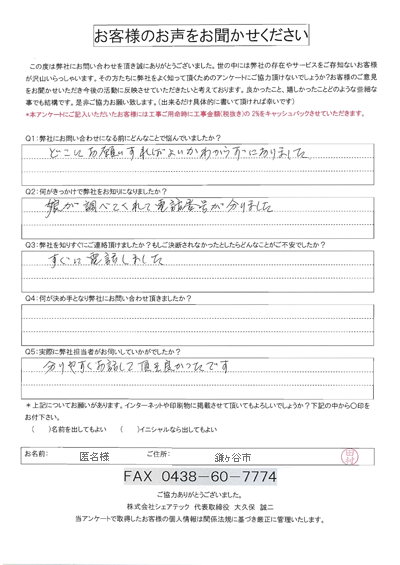 お客様のお声をお聞かせください
この度は弊社にお問い合わせを頂き誠にありがとうございました。世の中には弊社の存在やサービスをご存知ないお客様
が沢山いらっしゃいます。その方たちに弊社をよく知って頂くためのアンケートにご協力頂けないでしょうか?お客様のご意見
をお聞かせいただき今後の活動に反映させていただきたいと考えております。良かったこと、嬉しかったことどのような些細な
事でも結構です。是非ご協力お願い致します。(出来るだけ具体的に書いて頂ければ幸いです)
*本アンケートにご記入いただいたお客様には工事ご用命時に工事金額(税抜き)の2%をキャッシュバックさせていただきます。
Q1:弊社にお問い合わせになる前にどんなことで悩んでいましたか?
どこにお願いすればよいかわからずにおりました
Q2:何がきっかけで弊社をお知りになりましたか?
娘が調べてくれて電話番号が分りました
Q3:弊社を知りすぐにご連絡頂けましたか?もしご決断されなかったとしたらどんなことがご不安でしたか?
すぐに電話しました
Q4:何が決め手となり弊社にお問い合わせ頂きましたか?
Q5:実際に弊社担当者がお伺いしていかがでしたか?
分りやすくお話して頂き良かったです
*上記についてお願いがあります。インターネットや印刷物に掲載させて頂いてもよろしいでしょうか?下記の中から〇印を
お付下さい。
( )名前を出してもよい ( )イニシャルなら出してもよい
お名前: 匿名様 ご住所: 鎌ヶ谷市
FAX 0438-60-7774
ご協力ありがとうございました。
株式会社シェアテック 代表取締役 大久保 誠二
当アンケートで取得したお客様の個人情報は関係法規に基づき厳正に管理いたします。